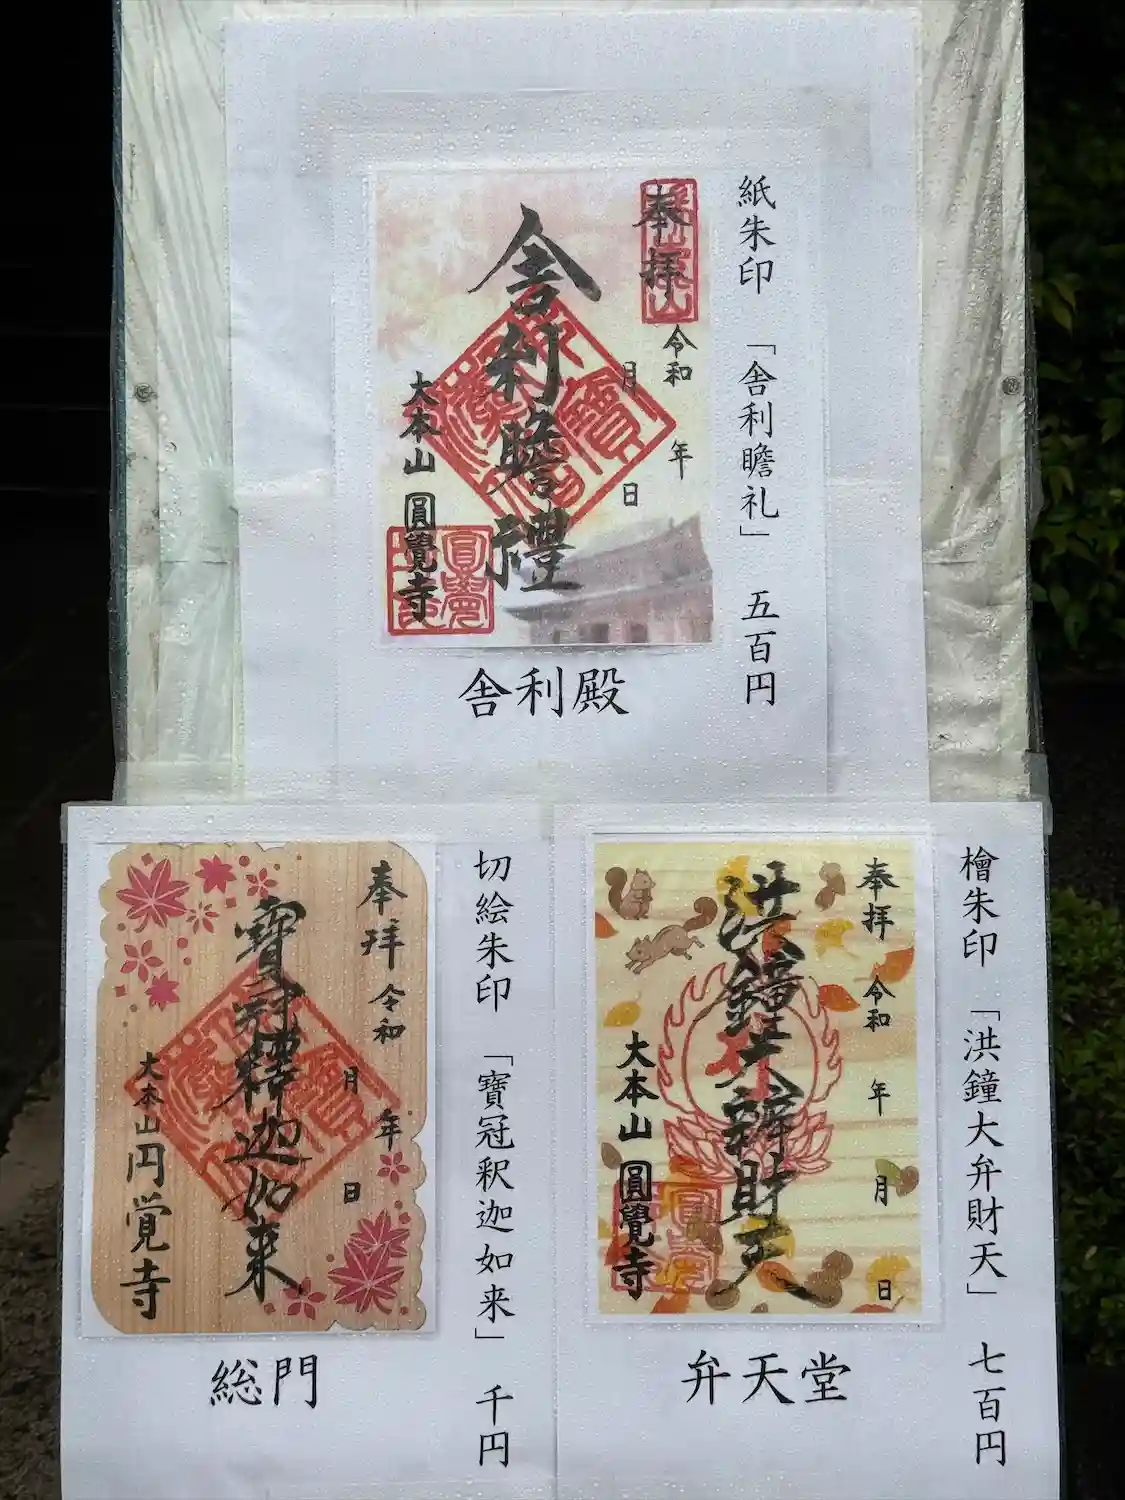 紙朱印 「舎利瞻礼」 五百円
奉拝
令和 年
月 日
舎利瞻禮
大本山 圓覺寺
舎利殿
檜朱印 「洪鐘大弁財天」 七百円
奉拝 令和 年 月 日
洪鐘大辨財天
大本山 圓覺寺
弁天堂
切絵朱印 「寶冠釈迦如来」 千円
奉拝 令和 年
月 日
寶冠釋迦如来
大本山円覚寺
総門